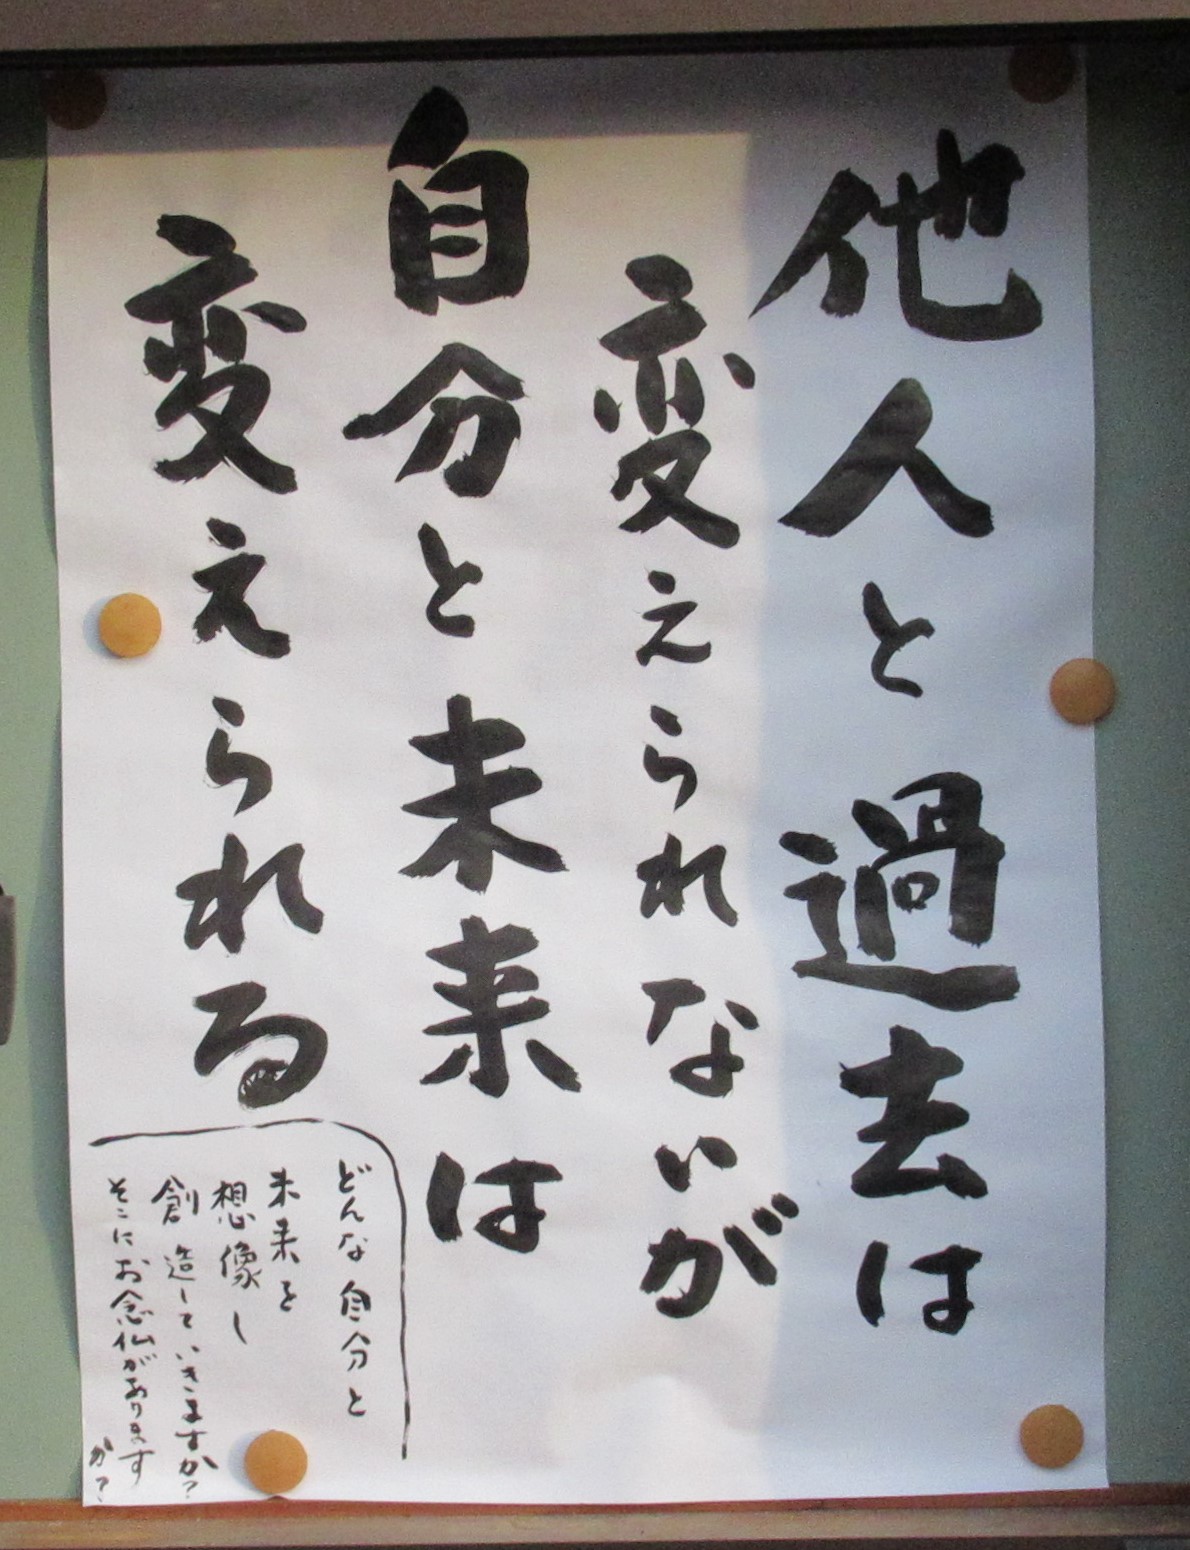 他人と過去は
変えられないが
自分と未来は
変えられる
どんな自分と
未来を
想像し
創造していきますか?
そこにお念仏があります
か?